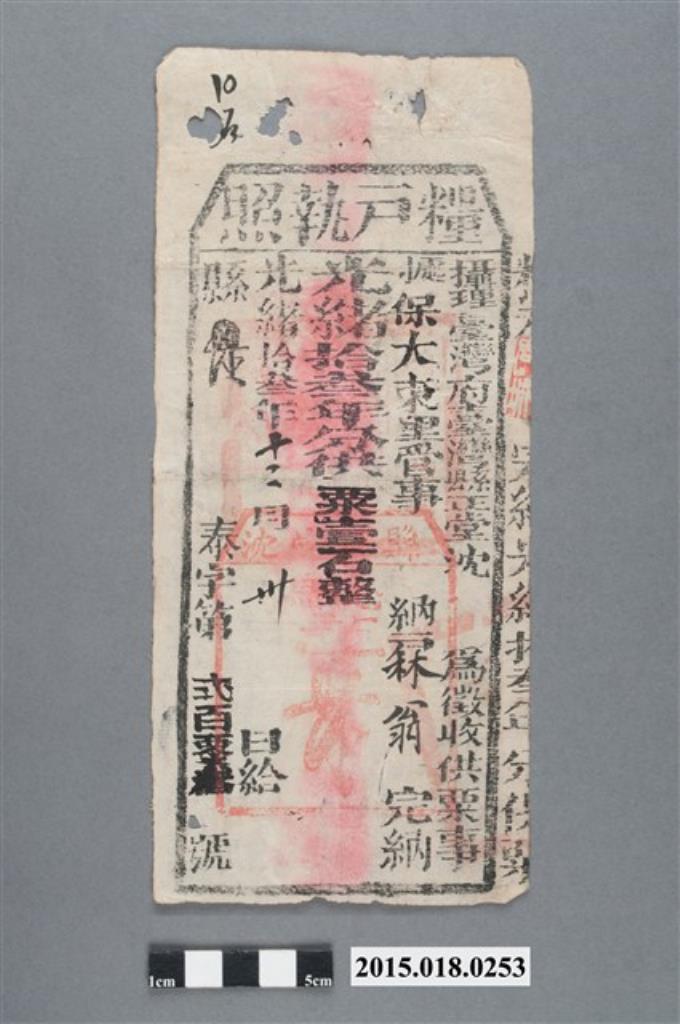 10
糧戶執照
攝理臺灣府臺灣縣正堂沈 為徵收供粟事
據保大東里管事 納 森翁 完納
光緒拾叁年分供粟壹石整
光緒拾叁年十二月 卅 日給
縣
泰字第 貳百零叁 號
縣 沈
光緒拾叁年分供粟
1cm 5cm
2015.018.0253